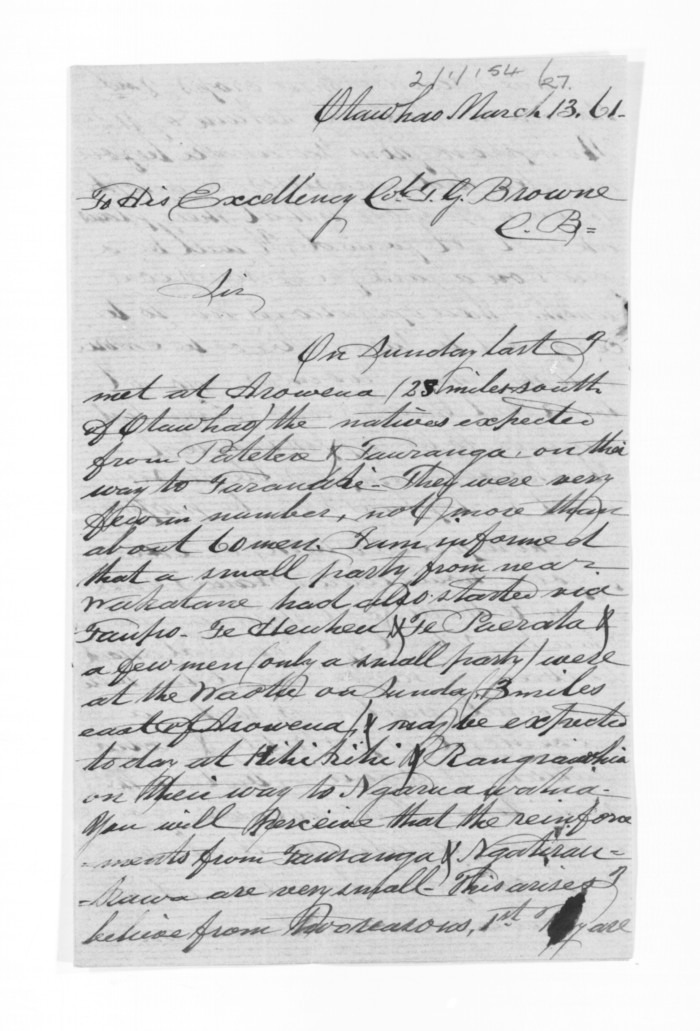 2/1/154 /27.
Otawhao March 13. 61-
To His Excellency Col. T. G. Browne
C. B=
Sir
On Sunday last I
met at Arowena (23 miles south
of Otawhao) the natives expected
from Patetere & Tauranga, on their
way to Taranaki - They were very
few in number, not more than
about 60 men. I am informed
that a small party from near
Wakatane had also started via
Taupo. Te Heuheu & Te Paerata &
a few men (only a small party) were
at the on Sunday, (3 miles
east of Arowena) & may be expected
today at Hihikihi & Rangiaohia
on their way to Ngaruawahia -
You will perceive that the reinforce
-ments from Tauranga & Ngatirau-
-kawa are very small - This arises I
beleive from two reasons, 1st They are